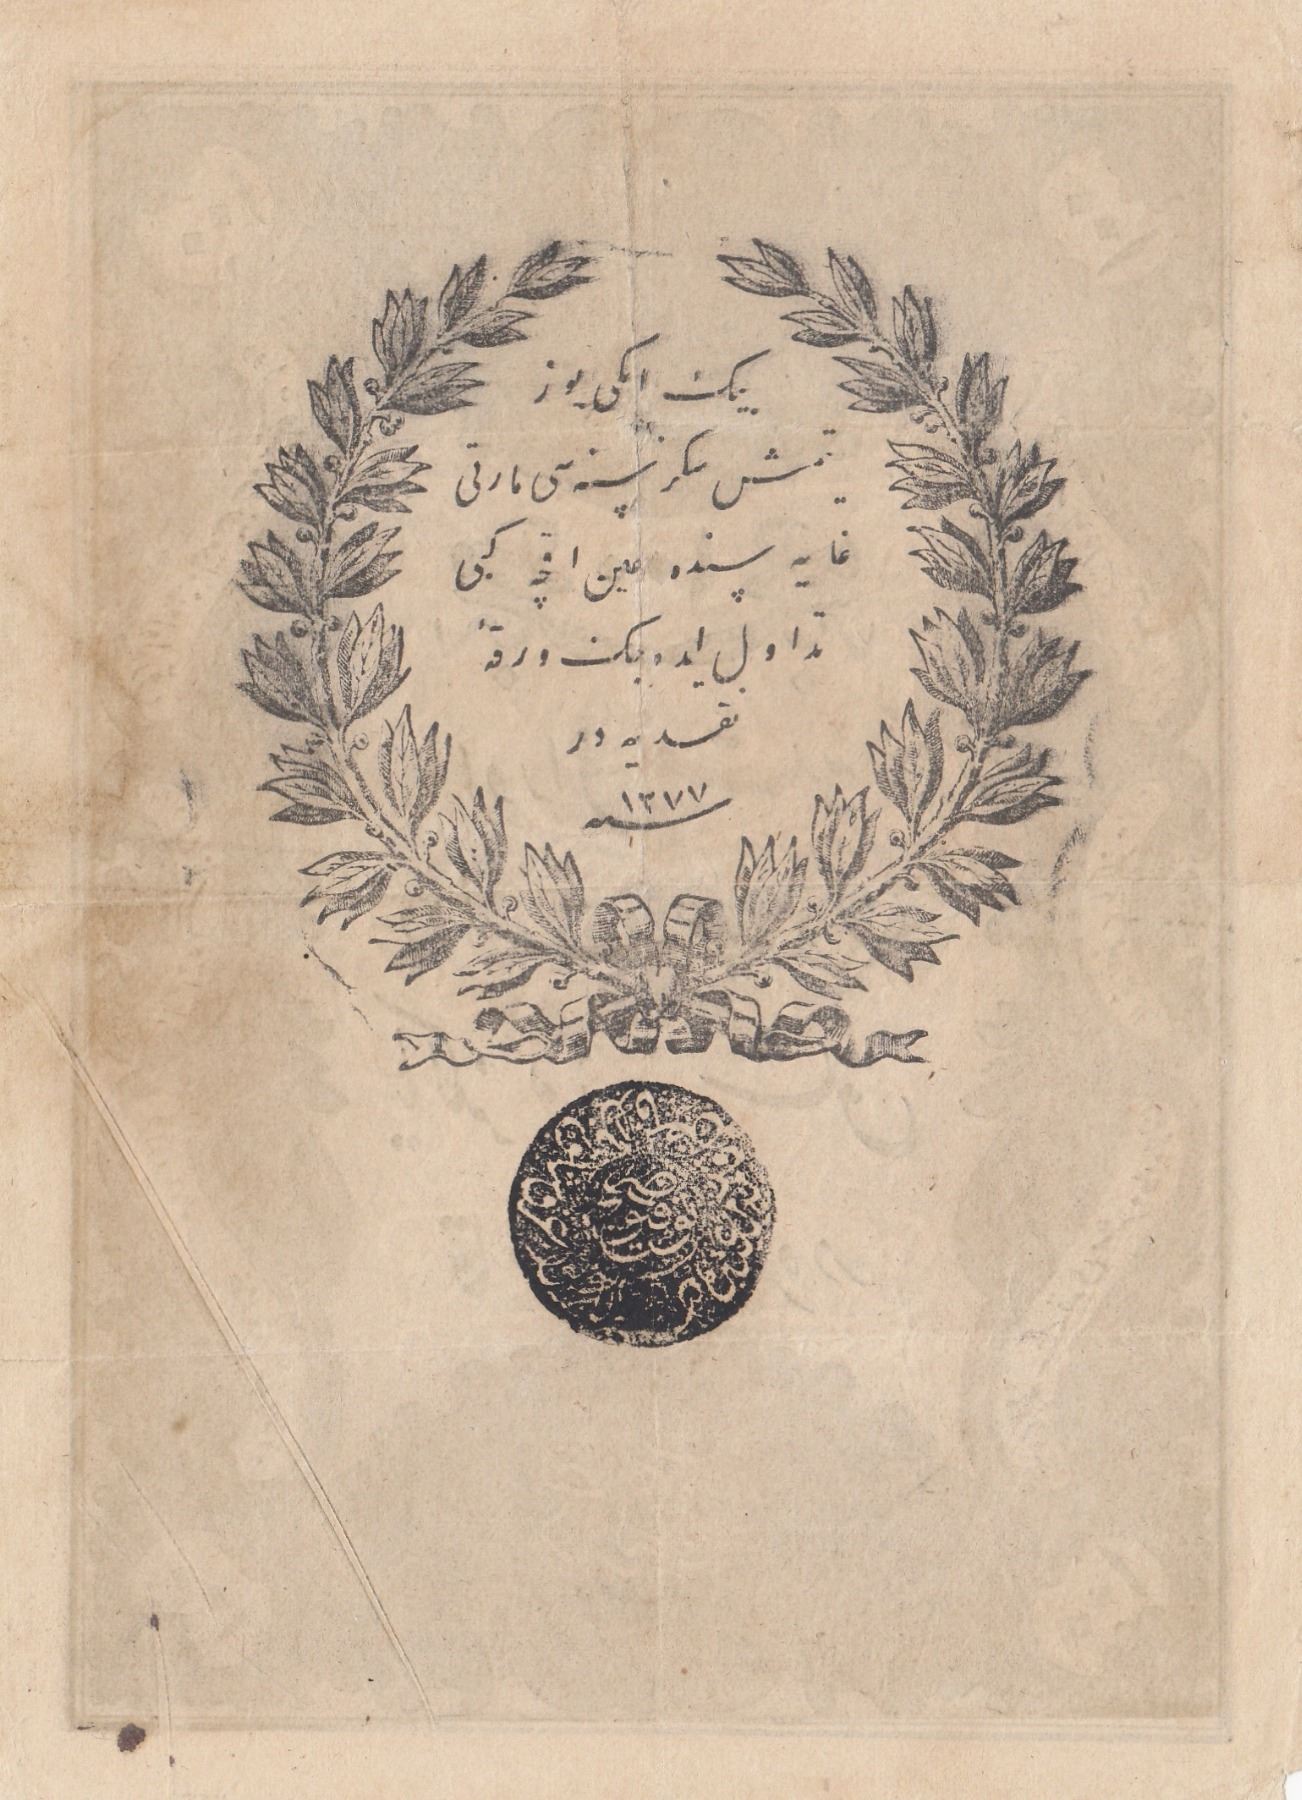 بیک ایکی یوز
یتمش سکز سنه سی مارتی
غایه سنده عین اقچه کبی
تداول ایده جک ورقۀ
نقدیه در
سنه ١٢٧٧